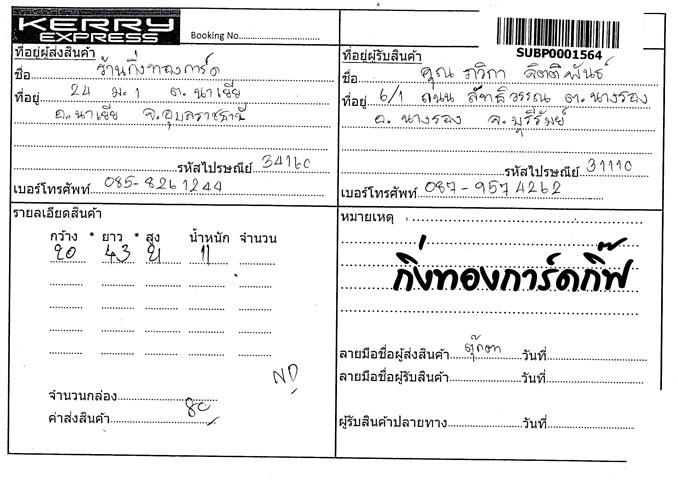 KERRY
EXPRESS
Booking No.
SUBP0001564
ที่อยู่ผู้ส่งสินค้า
ชื่อ ร้านกิ่งทองการ์ด
ที่อยู่ 24 ม.1 ต.นาเยีย
อ.นาเยีย จ.อุบลราชธานี
รหัสไปรษณีย์ 34160
เบอร์โทรศัพท์ 085-8261244
ที่อยู่ผู้รับสินค้า
ชื่อ คุณ ภวิกา กิตติพันธ์
ที่อยู่ 6/1 ถนน สิทธิวรรณ ต.นางรอง
อ.นางรอง จ.บุรีรัมย์
รหัสไปรษณีย์ 31110
เบอร์โทรศัพท์ 087-9574262
รายละเอียดสินค้า
กว้าง * ยาว * สูง น้ำหนัก จำนวน
20 43 21 11
ND
จำนวนกล่อง
ค่าส่งสินค้า 80
หมายเหตุ
กิ่งทองการ์ดกิ๊ฟ
ลายมือชื่อผู้ส่งสินค้า ตุ๊กตา วันที่
ลายมือชื่อผู้รับสินค้า วันที่
ผู้รับสินค้าปลายทาง วันที่